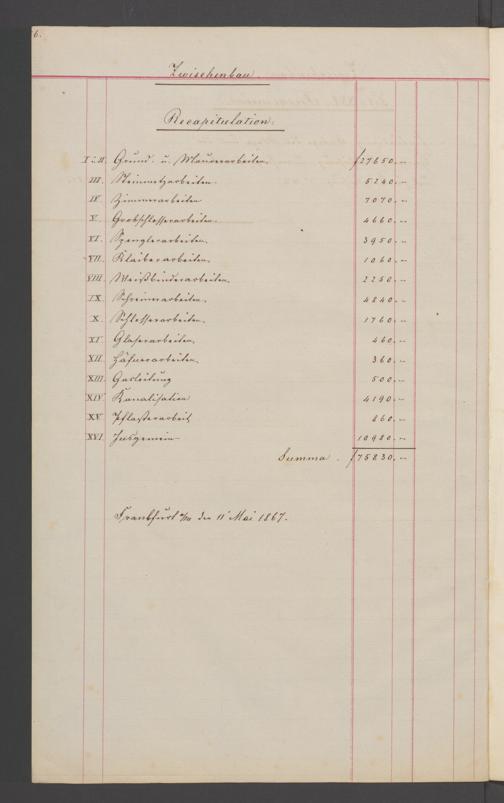 6.
Zwischenbau.
Recapitulation.
I u. II. Grund- u. Maurerarbeiten. f 27650. --
III. Steinmetzarbeiten. 5240. --
IV. Zimmerarbeiten 7070. --
V. Grobschlosserarbeiten. 4660. --
VI. Spenglerarbeiten. 3950. --
VII. Kleiberarbeiten. 1060. --
VIII. Weißbinderarbeiten. 2250. --
IX. Schreinerarbeiten. 4840. --
X. Schlosserarbeiten. 1760. --
XI. Glaserarbeiten. 460. --
XII. Häfnerarbeiten. 360. --
XIII. Gasleitung 500. --
XIV. Kanalisation 4190. --
XV. Pflasterarbeit 860. --
XVI. Insgemein 10980. --
Summa . f 75830. --
Frankfurt a/M den 11 Mai 1867.